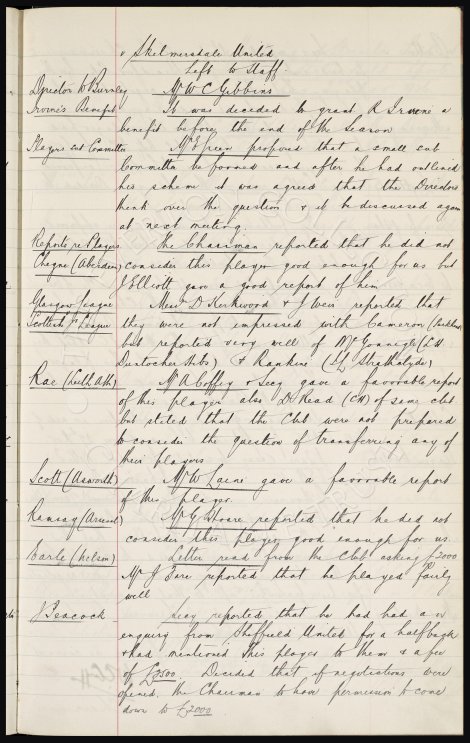 v Skelmersdale United
Left to Staff.
Director to Burnley Mr W C Gibbins
Irvine's Benefit It was decided to grant R Irvine a
benefit before the end of the Season
Players sub Committee Mr Green proposed that a small sub
Committee be formed and after he had outlined
his scheme it was agreed that the Directors
think over the question & it be discussed again
at next meeting
Reports re Players The Chairman reported that he did not
Cheyne (Aberdeen) consider this player good enough for us but
J Elliott gave a good report of him
Glasgow League Messrs D Kirkwood & J Weir reported that
Scottish Jr League they were not impressed with Cameron
but reported very well of McGonnigle (LH
Duntocher Hibs) & Rankine (LH Strathclyde)
Rae (Leith Ath) Mr A Coffey & Secy gave a favorable report
of this player also D Read (CH) of same club
but stated that the Club were not prepared
to consider the question of transferring any of
their players
Scott (Usworth) Mr W Laine gave a favorable report
of this player.
Ramsay (Arsenal) Mr G Hoare reported that he did not
consider this player good enough for us.
Carle (Nelson) Letter read from the Club asking £2000
Mr J Fare reported that he played fairly
well
J Peacock Secy reported that he had had a
enquiry from Sheffield United for a halfback
& had mentioned this player to them & a fee
of £2500. Decided that if negotiations were
opened, the Chairman to have permission to come
down to £2000